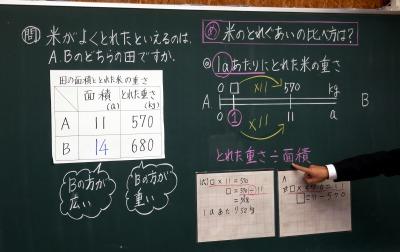 問 米がよくとれたといえるのは、
A.Bのどちらの田ですか。
田の面積ととれた米の重さ
面積(a) とれた重さ(kg)
A 11 570
B 14 680
Bの方が広い
Bの方が重い
め 米のとれぐあいの比べ方は?
1aあたりにとれた米の重さ
×11
0 □ 570 kg
A B
0 1 11 a
×11
とれた重さ÷面積
□×11=570
A